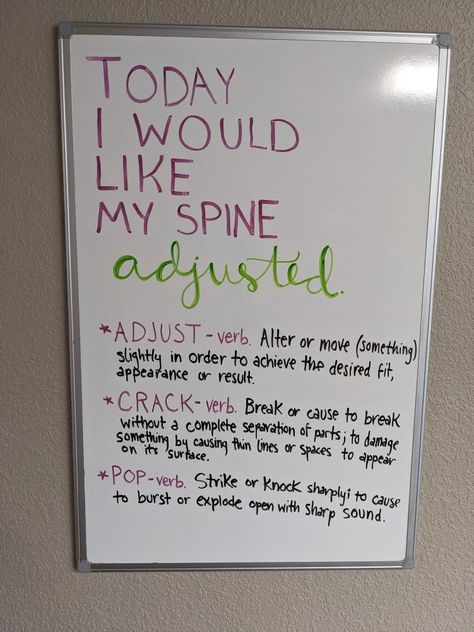 TODAY
I WOULD
LIKE
MY SPINE
adjusted.
*ADJUST - verb. Alter or move (something)
slightly in order to achieve the desired fit,
appearance or result.
*CRACK - verb. Break or cause to break
without a complete separation of parts; to damage
something by causing thin lines or spaces to appear
on its surface.
*POP - verb. Strike or knock sharply; to cause
to burst or explode open with sharp sound.